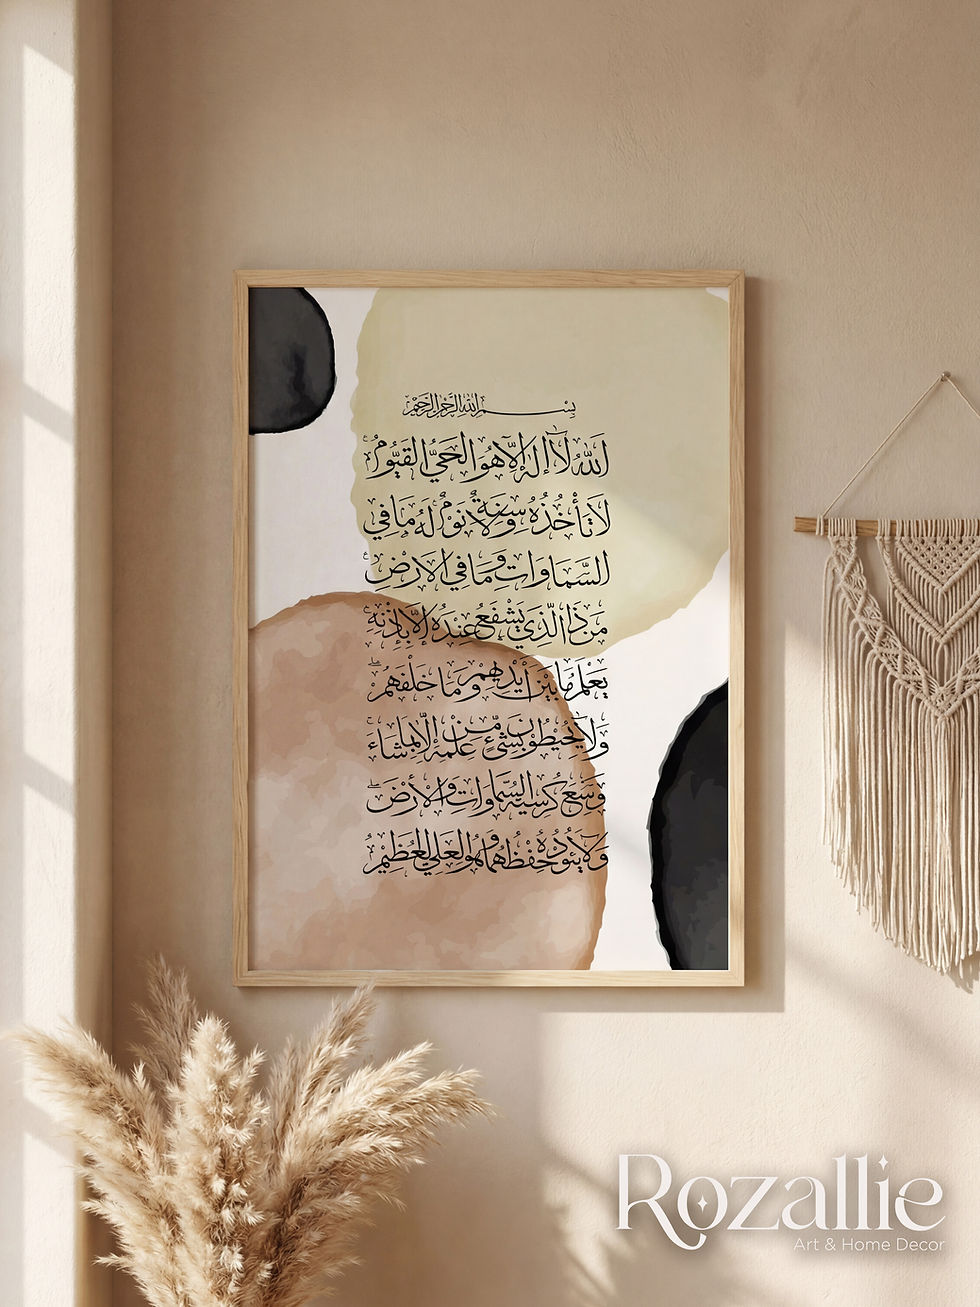 بِسْمِ اللهِ الرَّحْمٰنِ الرَّحِيْمِ
اَللّٰهُ لَآ اِلٰهَ اِلَّا هُوَ الْحَيُّ الْقَيُّوْمُ
لَا تَأْخُذُهٗ سِنَةٌ وَّلَا نَوْمٌ لَهٗ مَا فِي
السَّمَاوَاتِ وَمَا فِي الْاَرْضِ
مَنْ ذَا الَّذِيْ يَشْفَعُ عِنْدَهٗ اِلَّا بِاِذْنِهٖ
يَعْلَمُ مَا بَيْنَ اَيْدِيْهِمْ وَمَا خَلْفَهُمْ
وَلَا يُحِيْطُوْنَ بِشَيْءٍ مِّنْ عِلْمِهٖ اِلَّا بِمَا شَاءَ
وَسِعَ كُرْسِيُّهُ السَّمَاوَاتِ وَالْأَرْضَ
وَلَا يَئُوْدُهٗ حِفْظُهُمَا وَهُوَ الْعَلِيُّ الْعَظِيْمُ
Rozallie
Art & Home Decor